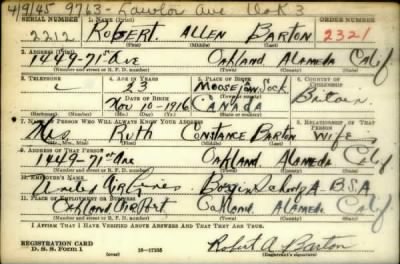 4/9/45 9763- Lawlor Ave Oak 3
SERIAL NUMBER 1. NAME (Print) ORDER NUMBER
2212 ROBERT ALLEN BARTON 2321
(First) (Middle) (Last)
2. ADDRESS (Print)
1449-71st Ave Oakland Alameda Calif
(Number and street or R. F. D. number) (Town) (County) (State)
3. TELEPHONE 4. AGE IN YEARS 5. PLACE OF BIRTH 6. COUNTRY OF CITIZENSHIP
23 MOOSE JAW, Sask.
DATE OF BIRTH (Town or county)
Nov 10-1916 CANADA Britain
(Mo.) (Day) (Yr.) (State or country)
7. NAME OF PERSON WHO WILL ALWAYS KNOW YOUR ADDRESS 8. RELATIONSHIP OF THAT PERSON
Mrs Ruth Constance Barton Wife
(Mr., Mrs., Miss) (First) (Middle) (Last)
9. ADDRESS OF THAT PERSON
1449-71st Ave Oakland Alameda Calif
(Number and street or R. F. D. number) (Town) (County) (State)
10. EMPLOYER'S NAME
United Air Lines Boeing School A-BSA
11. PLACE OF EMPLOYMENT OR BUSINESS
Oakland Airport Oakland Alameda Calif
(Number and street or R. F. D. number) (Town) (County) (State)
I AFFIRM THAT I HAVE VERIFIED ABOVE ANSWERS AND THAT THEY ARE TRUE.
REGISTRATION CARD
D. S. S. Form 1 (over) 16-17105 Robert A Barton
(Registrant's signature)